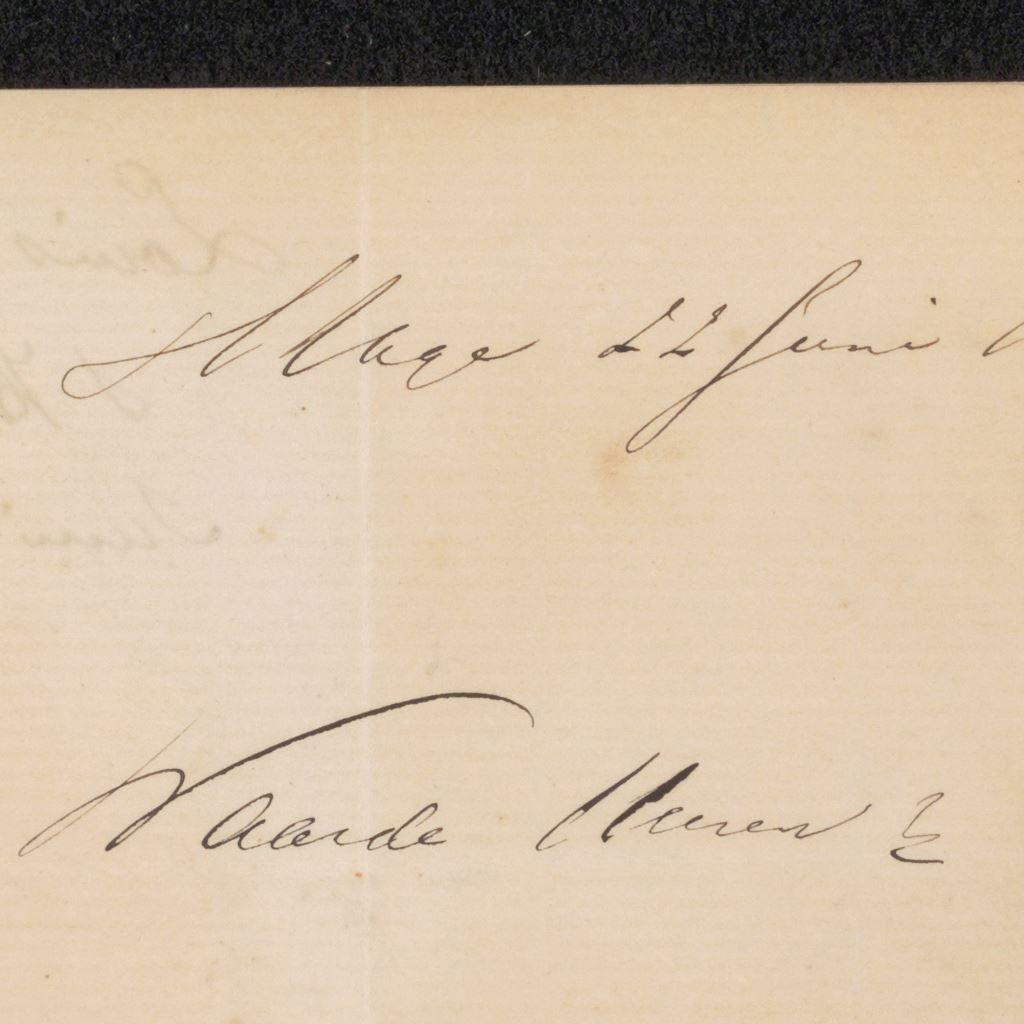 s'Hage 22 Juni
Waarde Heeren